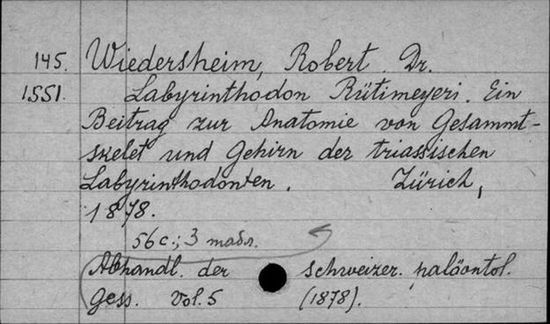 145. Wiedersheim, Robert. Dr.
1551. Labyrinthodon Rütimeyeri. Ein
Beitrag zur Anatomie von Gesammt-
skelet und Gehirn der triassischen
Labyrinthodonten. Zürich,
1878.
56 c.; 3 табл.
Abhandl. der schweizer. paläontol.
Gess. Vol. 5 (1878).